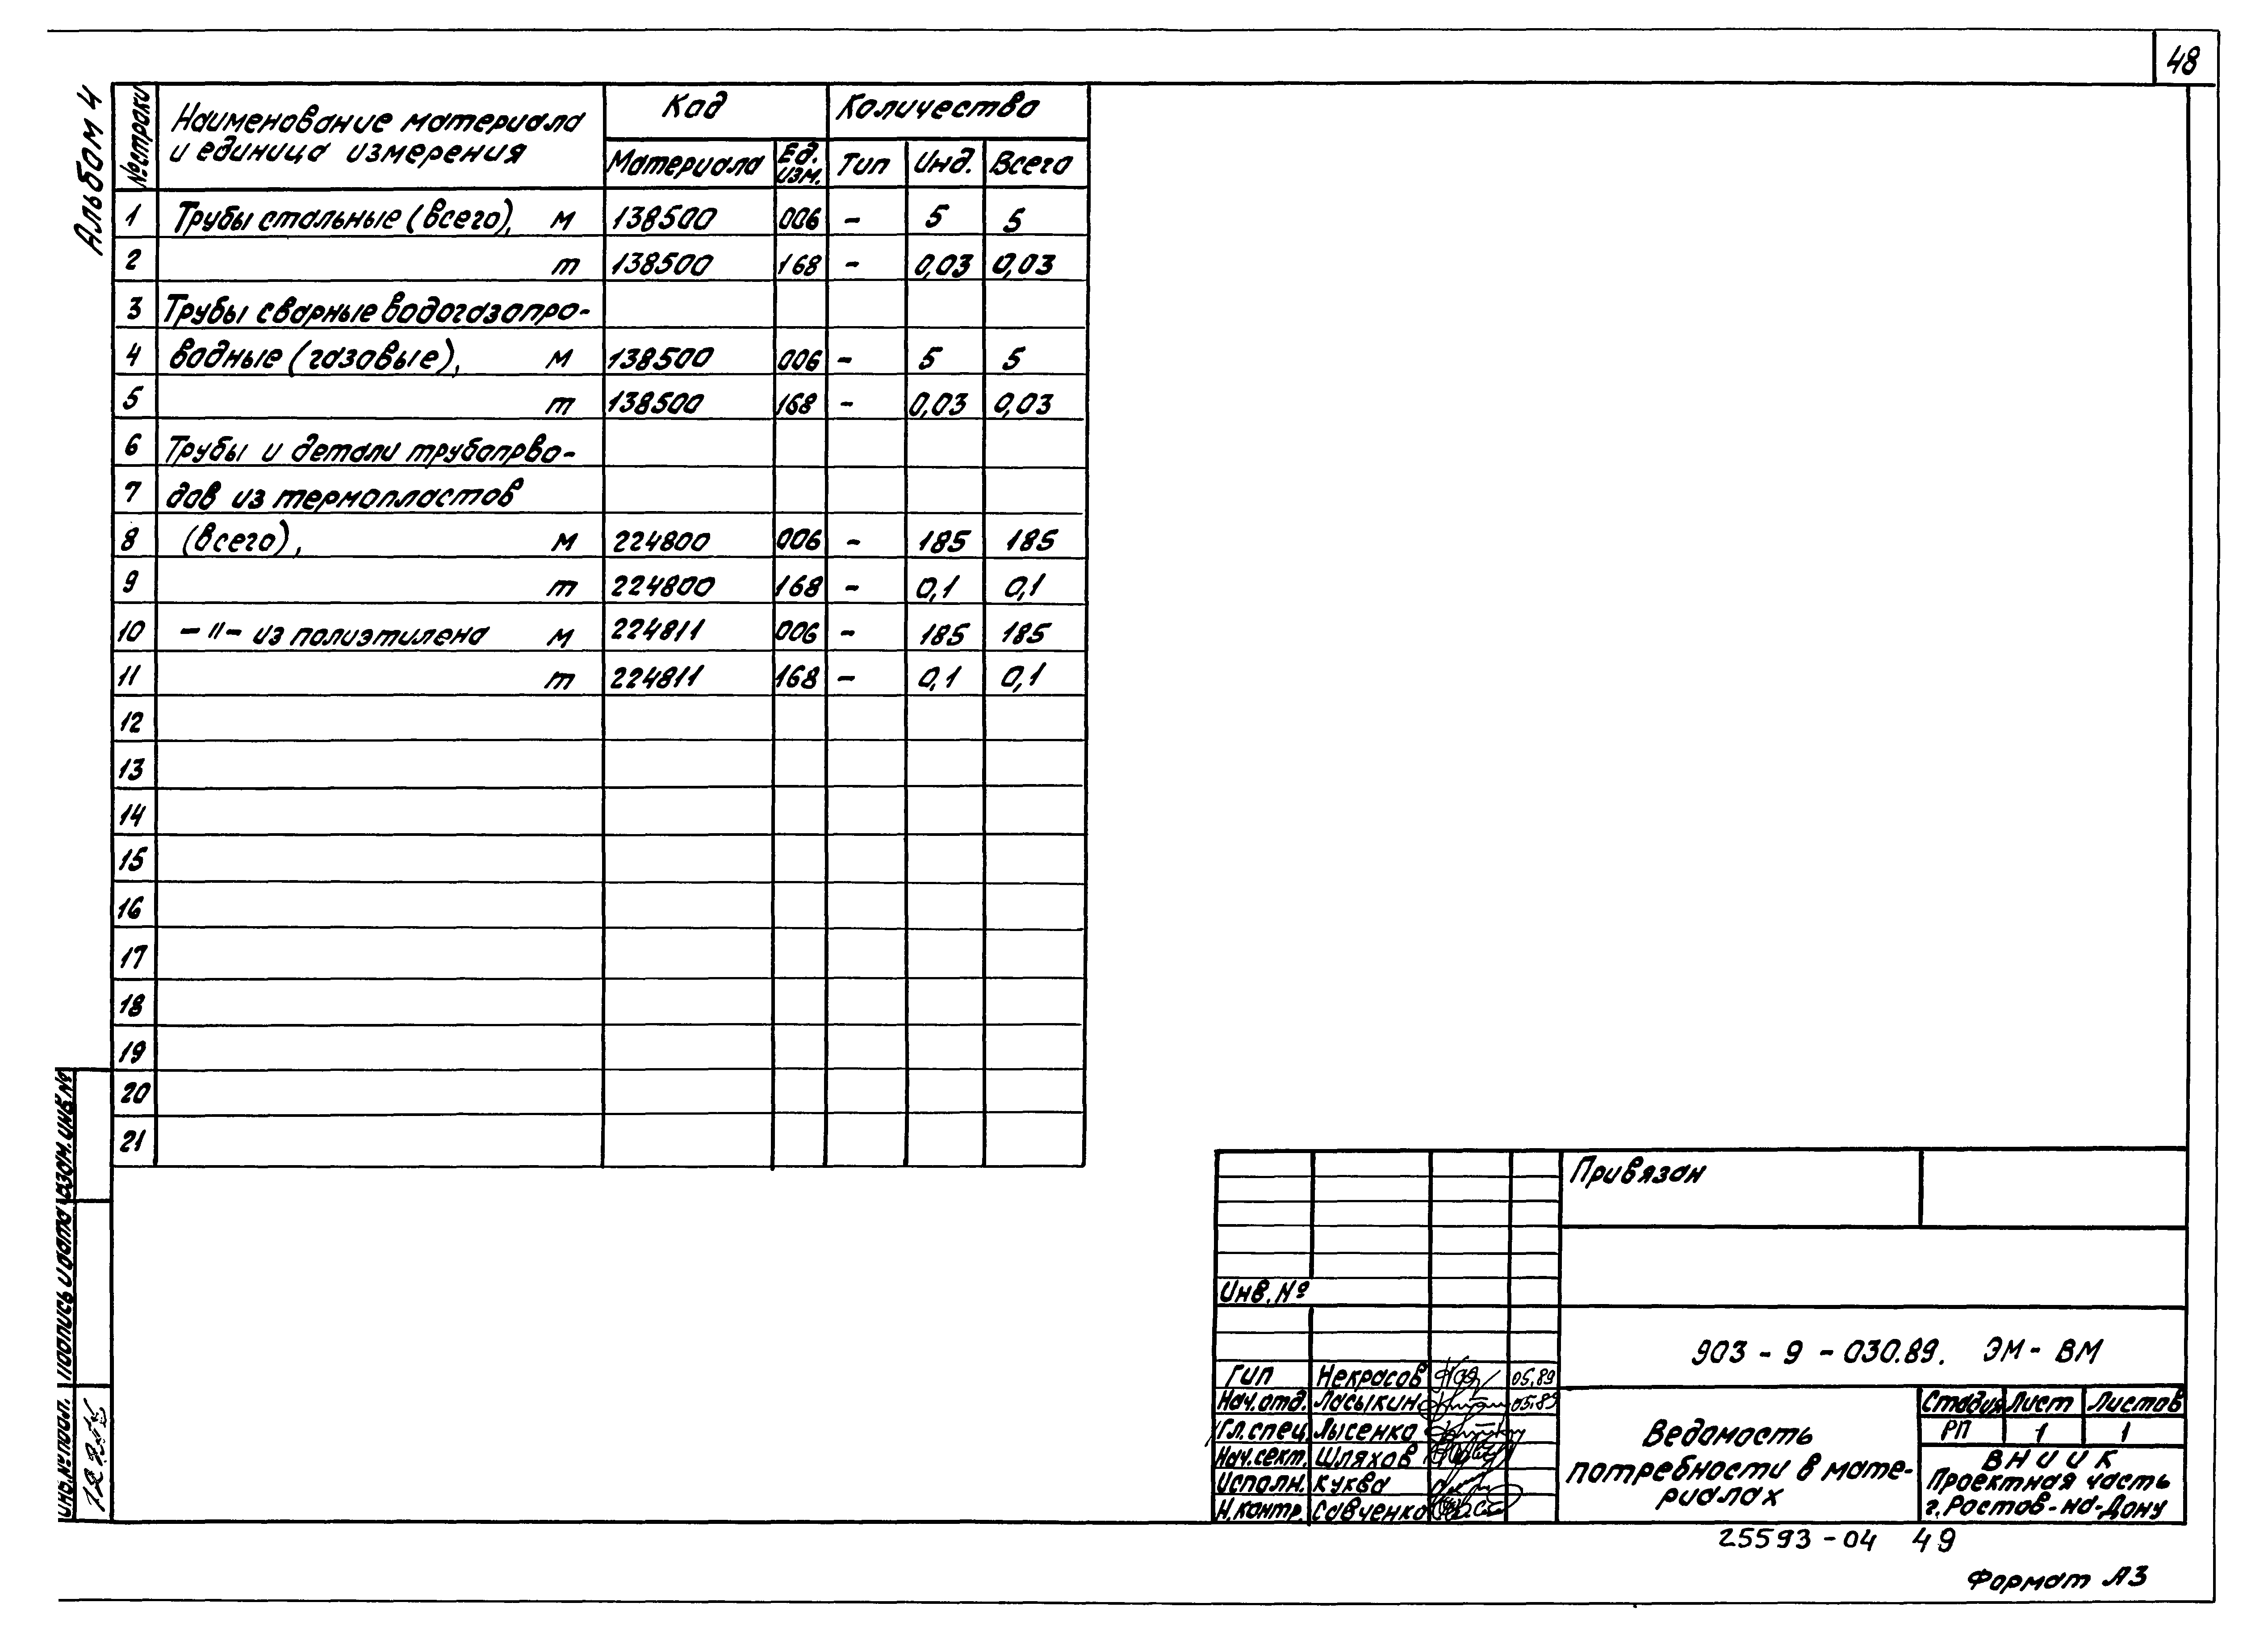 48
Альбом 4
№ строки
Наименование материала
и единица измерения
Код
Количество
Материала
Ед.
изм.
Тип
Инд.
Всего
1 Трубы стальные (всего), м 138500 006 - 5 5
2 т 138500 168 - 0,03 0,03
3 Трубы сварные водогазопро-
4 водные (газовые), м 138500 006 - 5 5
5 т 138500 168 - 0,03 0,03
6 Трубы и детали трубопрво-
7 дов из термопластов
8 (всего), м 224800 006 - 185 185
9 т 224800 168 - 0,1 0,1
10 -"- из полиэтилена м 224811 006 - 185 185
11 т 224811 168 - 0,1 0,1
12
13
14
15
16
17
18
19
20
21
Взам. инв. №
Подпись и дата
Инв. № подл.
Привязан
Инв. №
903 - 9 - 030.89. ЭМ - ВМ
ГИП Некрасов 05.89
Нач. отд. Ласыкин 05.89
Гл. спец. Лысенко
Нач. сект. Шляхов
Исполн. Куква
Н. контр. Савченко
Ведомость
потребности в мате-
риалах
Стадия Лист Листов
РП 1 1
ВНИИК
Проектная часть
г. Ростов-на-Дону
25593-04 49
Формат А3